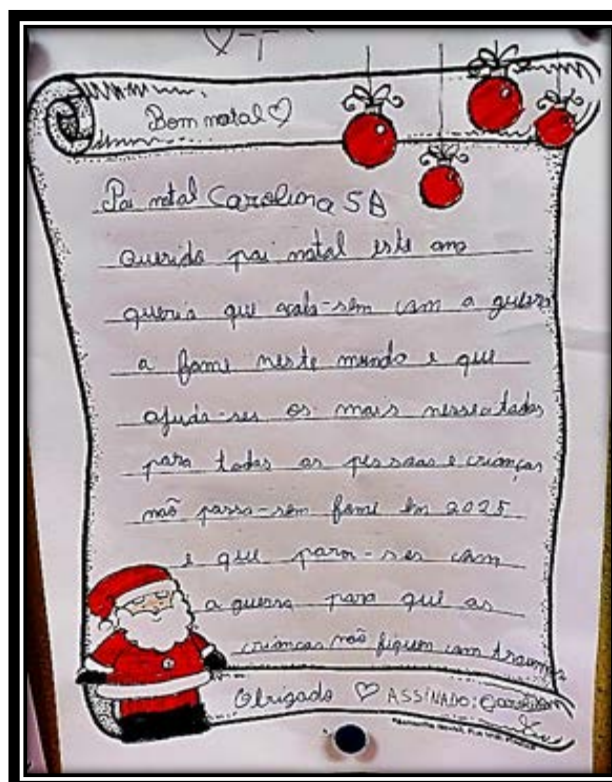 Bom natal ♡
Pai natal Carolina 5B
Querido pai natal este ano
queria que acaba-sem com a guerra
a fome neste mundo e que
ajuda-ses os mais nessecitados
para todas as pessoas e crianças
não passa-sem fome em 2025
e que para-ses com
a guerra para que as
crianças não fiquem com traumas
Obrigada ♡ ASSINADO: Carolina